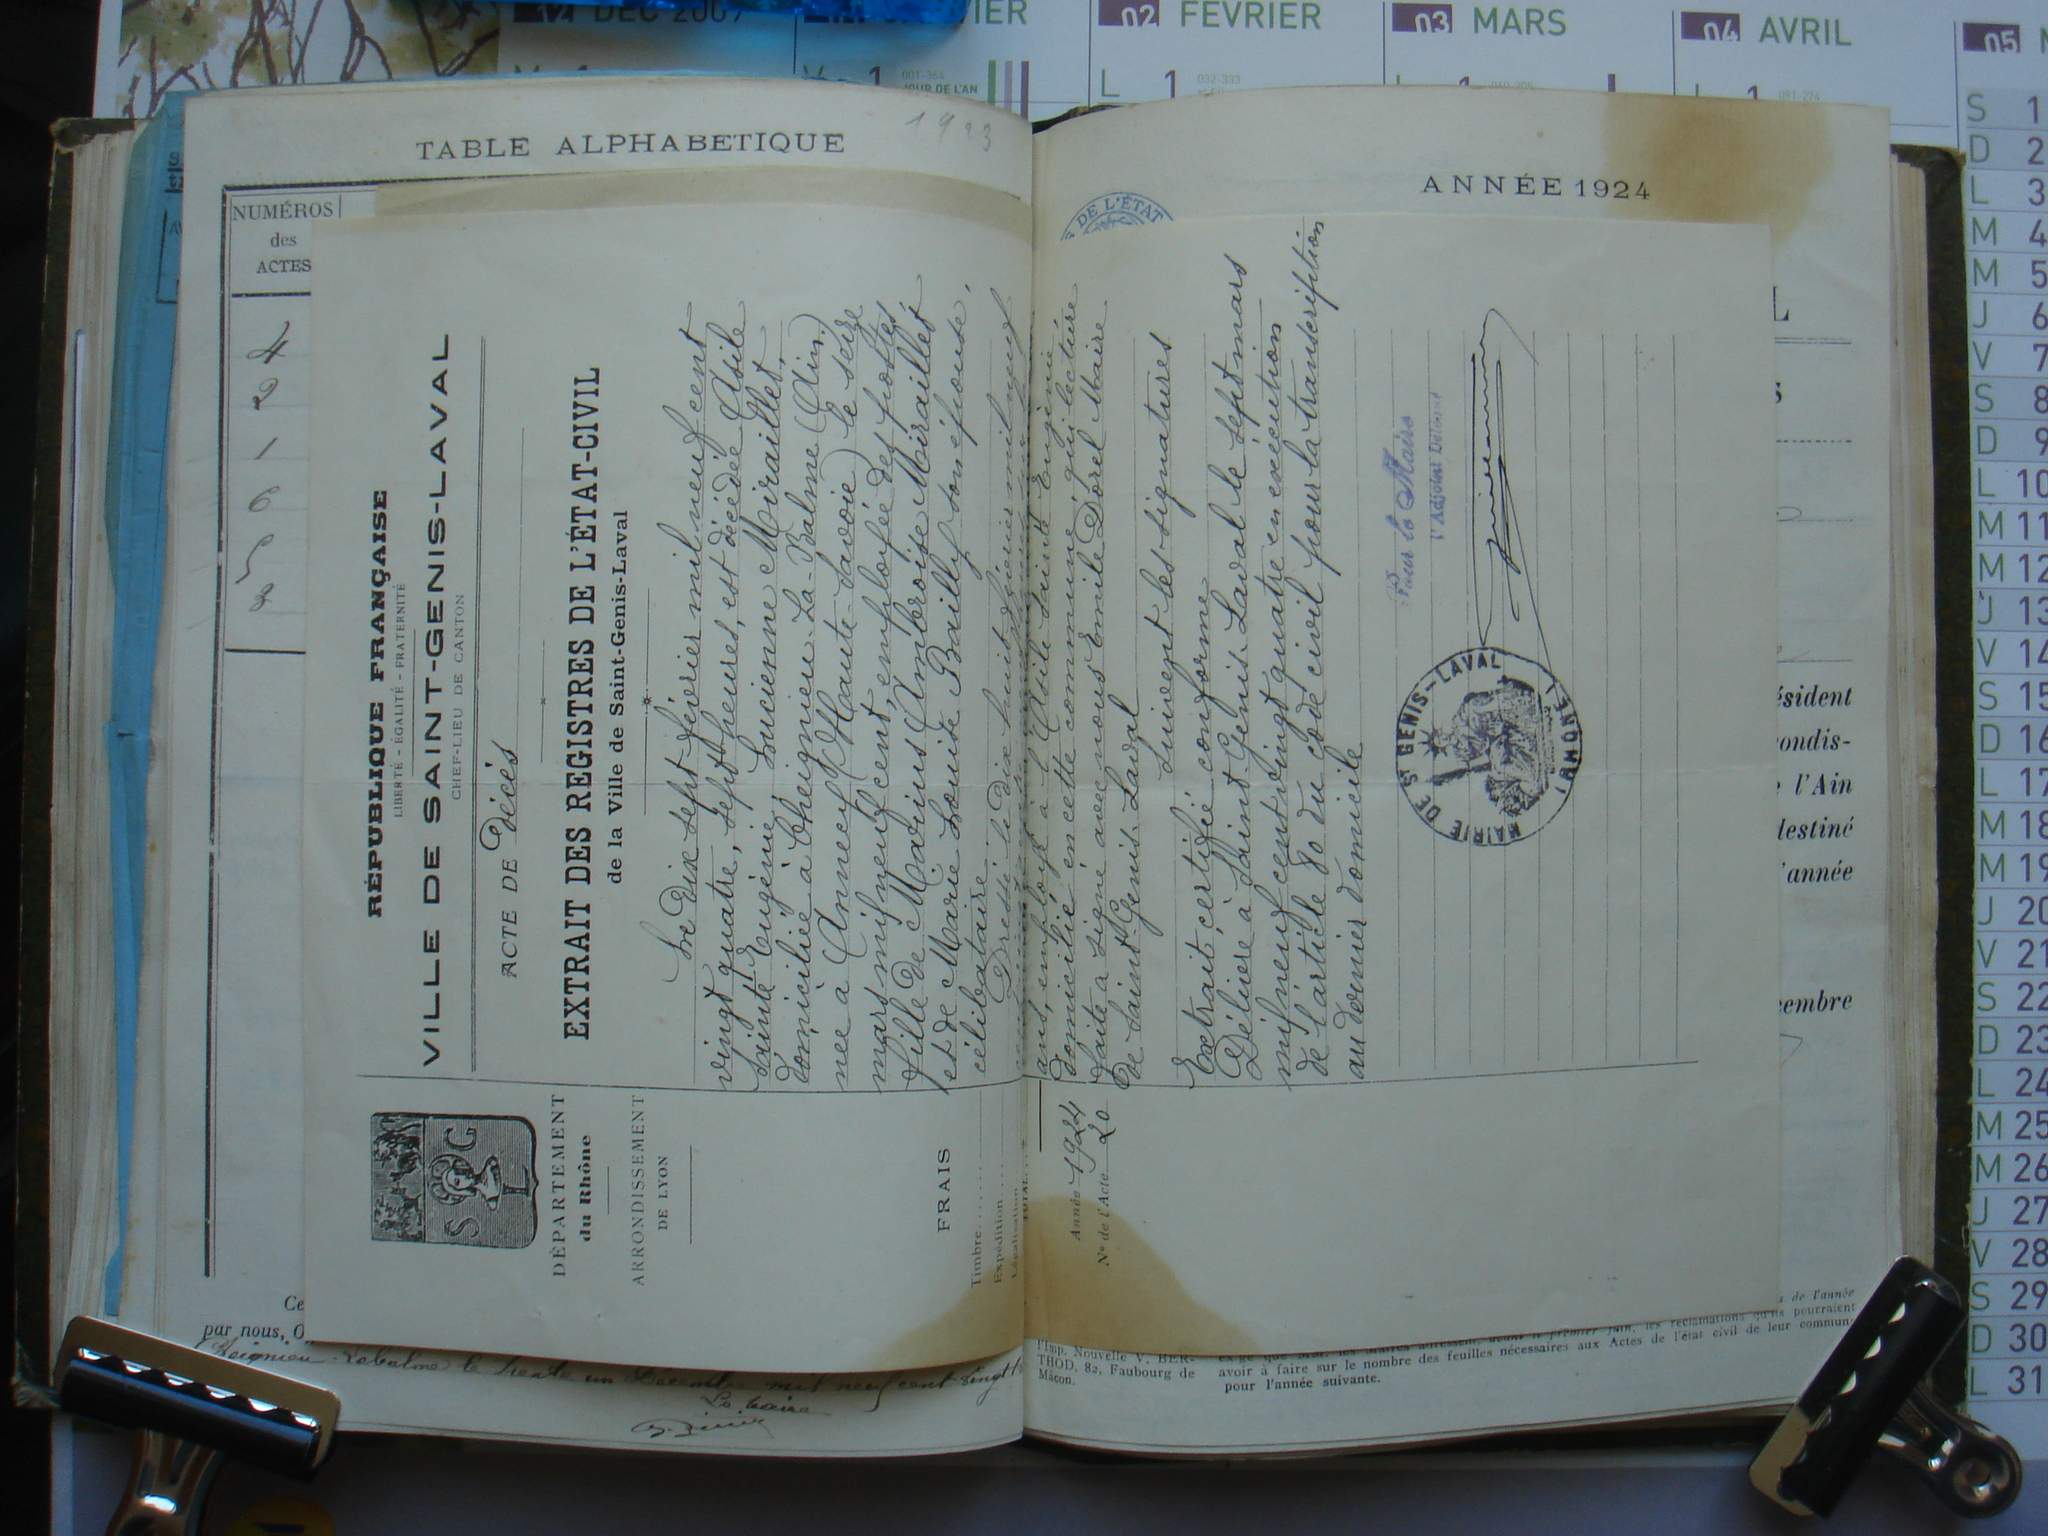 DEC 2009
VIER
02 FEVRIER
03 MARS
04 AVRIL
05 M
1
001-364
JOUR DE L'AN
L 1
032-333
L 1
L 1
091-274
TABLE ALPHABETIQUE
1923
NUMÉROS
des
ACTES
4
2
1
6
5
ANNÉE 1924
DE L'ÉTAT
RÉPUBLIQUE FRANÇAISE
LIBERTÉ - ÉGALITÉ - FRATERNITÉ
VILLE DE SAINT-GENIS-LAVAL
CHEF-LIEU DE CANTON
ACTE DE Décès
EXTRAIT DES REGISTRES DE L'ÉTAT-CIVIL
de la Ville de Saint-Genis-Laval
S G
DÉPARTEMENT
du Rhône
ARRONDISSEMENT
DE LYON
FRAIS
Timbre
Expédition
Légalisation
TOTAL
Année 1924
N° de l'Acte 20
Le dix sept février mil neuf cent
vingt quatre, sept heures, est décédée Asile
Sainte Eugénie, Lucienne Miraillet,
domiciliée à Cheignieu-La-Balme (Ain)
née à Annecy (Haute-Savoie) le seize
mars mil neuf cent, employée des postes
fille de Marius Ambroise Miraillet
et de Marie Louise Bailly son épouse,
célibataire
Dressé le dix huit février mil neuf
ans, employé à l'Asile Sainte Eugénie
domicilié en cette commune, qui lecture
faite a signé avec nous Emile Dorel Maire
de Saint-Genis-Laval
Suivent les signatures
Extrait certifié conforme
Délivré à Saint-Genis-Laval le sept mars
mil neuf cent vingt quatre en exécution
de l'article 80 du code civil pour la transcription
au dernier domicile
Pour le Maire
l'Adjoint Délégué
MAIRIE DE St GENIS-LAVAL
(RHONE)
L
s
ésident
ondis-
e l'Ain
destiné
l'année
cembre
Ce
par nous, O
Cheignieu-Labalme le trente un Décembre mil neuf cent vingt
Le Maire
l'Imp. Nouvelle V. BER-
THOD, 82, Faubourg de
Mâcon.
de l'année
qu'ils pourraient
avoir à faire sur le nombre des feuilles nécessaires aux Actes de l'état civil de leur commun
pour l'année suivante.
S 1
D 2
L 3
M 4
M 5
J 6
V 7
S 8
D 9
L 10
M 11
M 12
J 13
V 14
S 15
D 16
L 17
M 18
M 19
J 20
V 21
S 22
D 23
L 24
M 25
M 26
J 27
V 28
S 29
D 30
L 31